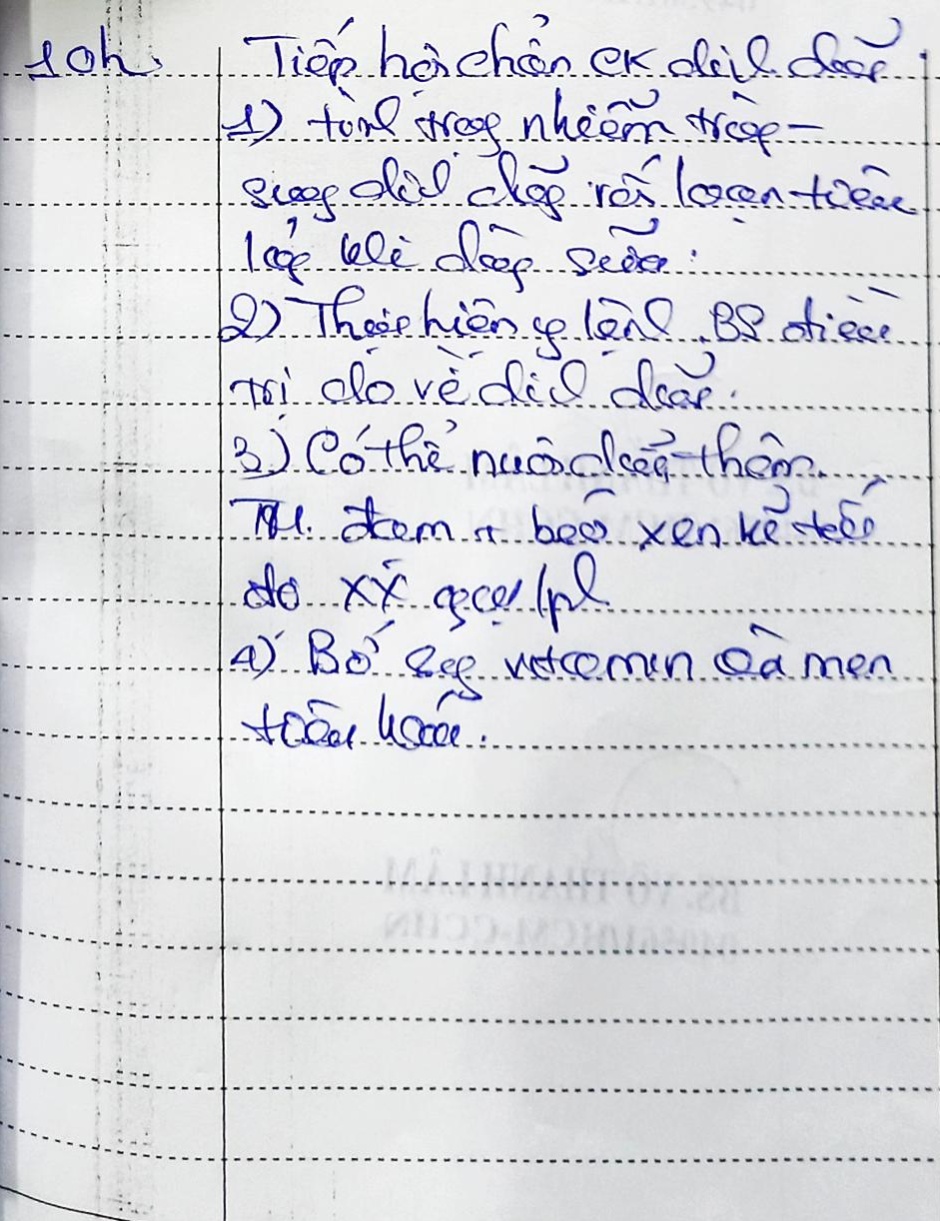 10h. Tiếp hội chẩn CK dinh dưỡng
1) tình trạng nhiễm trùng -
suy dinh dưỡng rối loạn tiêu
lỏng khi dùng sữa:
2) Thực hiện y lệnh BS điều
trị do về dinh dưỡng.
3) Có thể nuôi dưỡng thêm
đạm + béo xen kẽ
do
4) Bổ sung vitamin và men
tiêu hoá.
BS. VÕ THANH LÂM